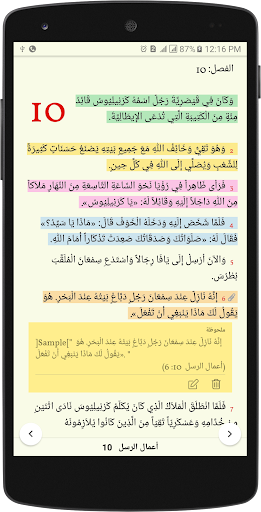 12:16 PM
الفصل: 10
10
وَكَانَ فِي قَيْصَرِيَّةَ رَجُلٌ اسْمُهُ كَرْنِيلِيُوسُ قَائِدُ
مِئَةٍ مِنَ الْكَتِيبَةِ الَّتِي تُدْعَى الإِيطَالِيَّةَ.
2 وَهُوَ تَقِيٌّ وَخَائِفُ اللهِ مَعَ جَمِيعِ بَيْتِهِ يَصْنَعُ حَسَنَاتٍ كَثِيرَةً
لِلشَّعْبِ وَيُصَلِّي إِلَى اللهِ فِي كُلِّ حِينٍ.
3 فَرَأَى ظَاهِراً فِي رُؤْيَا نَحْوَ السَّاعَةِ التَّاسِعَةِ مِنَ النَّهَارِ مَلاَكاً
مِنَ اللهِ دَاخِلاً إِلَيْهِ وَقَائِلاً لَهُ: «يَا كَرْنِيلِيُوسُ».
4 فَلَمَّا شَخَصَ إِلَيْهِ وَدَخَلَهُ الْخَوْفُ قَالَ: «مَاذَا يَا سَيِّدُ؟»
فَقَالَ لَهُ: «صَلَوَاتُكَ وَصَدَقَاتُكَ صَعِدَتْ تَذْكَاراً أَمَامَ اللهِ.
5 وَالآنَ أَرْسِلْ إِلَى يَافَا رِجَالاً وَاسْتَدْعِ سِمْعَانَ الْمُلَقَّبَ
بُطْرُسَ.
6 إِنَّهُ نَازِلٌ عِنْدَ سِمْعَانَ رَجُلٍ دَبَّاغٍ بَيْتُهُ عِنْدَ الْبَحْرِ. هُوَ
يَقُولُ لَكَ مَاذَا يَنْبَغِي أَنْ تَفْعَلَ».
ملحوظة
]Sample[" إِنَّهُ نَازِلٌ عِنْدَ سِمْعَانَ رَجُلٍ دَبَّاغٍ بَيْتُهُ عِنْدَ الْبَحْرِ. هُوَ
يَقُولُ لَكَ مَاذَا يَنْبَغِي أَنْ تَفْعَلَ». "
(أعمال الرسل 10: 6)
7 فَلَمَّا انْطَلَقَ الْمَلاَكُ الَّذِي كَانَ يُكَلِّمُ كَرْنِيلِيُوسَ نَادَى اثْنَيْنِ
مِنْ خُدَّامِهِ وَعَسْكَرِيّاً تَقِيّاً مِنَ الَّذِينَ كَانُوا يُلاَزِمُونَهُ
أعمال الرسل 10